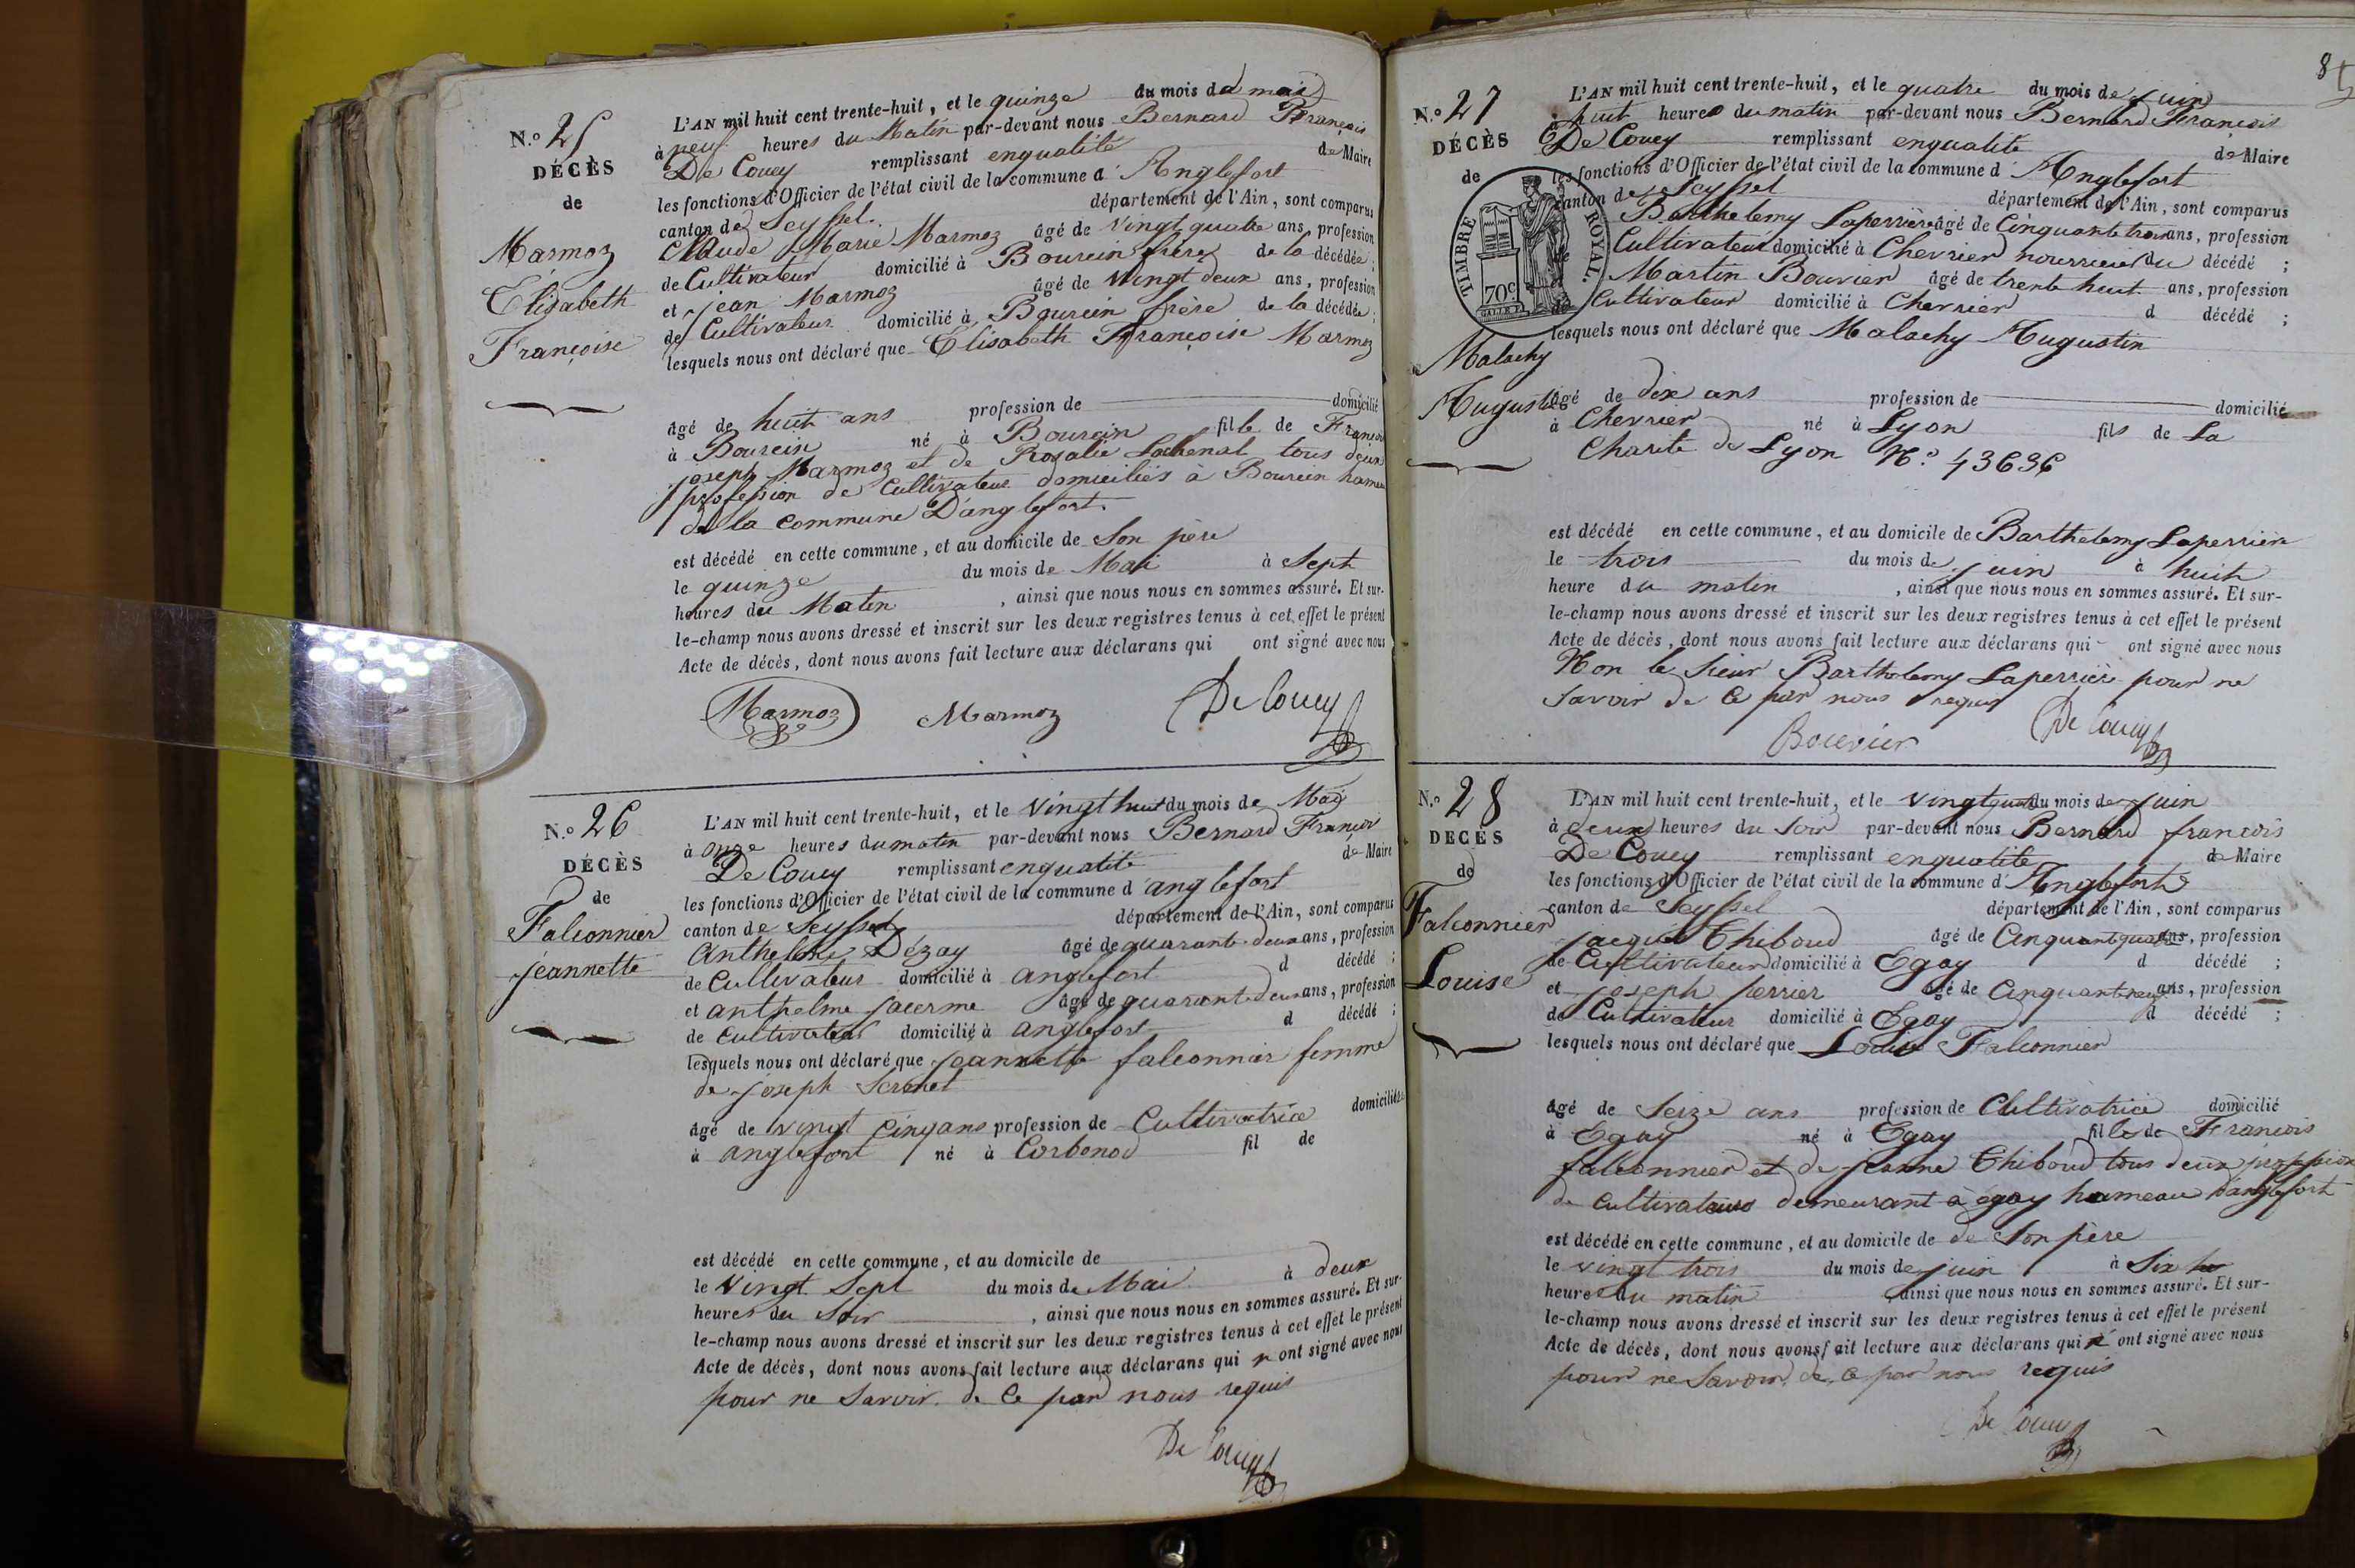 N.o 25
DÉCÈS
de
Marmoz
Elisabeth
Françoise
L'AN mil huit cent trente-huit, et le quinze du mois de mai
à neuf heures du Matin par-devant nous Bernard François
De Coucy remplissant enqualité de Maire
les fonctions d'Officier de l'état civil de la commune d'Anglefort
canton de Seyssel. département de l'Ain, sont comparus
Claude Marie Marmoz âgé de vingt quatre ans, profession
de Cultivateur domicilié à Bourcin frère de la décédée ;
et jean Marmoz âgé de vingt deux ans, profession
de Cultivateur domicilié à Bourcin frère de la décédée ;
lesquels nous ont déclaré que Elisabeth Françoise Marmoz
âgé de huit ans profession de domicilié
à Bourcin né à Bourcin fille de François
joseph Marmoz et de Rozalie Lachenal tous deux
profession de Cultivateur domiciliés à Bourcin hameau
de la commune D'anglefort.
est décédé en cette commune, et au domicile de Son père
le quinze du mois de Mai à Sept
heures du Matin , ainsi que nous nous en sommes assuré. Et sur-
le-champ nous avons dressé et inscrit sur les deux registres tenus à cet effet le présent
Acte de décès, dont nous avons fait lecture aux déclarans qui ont signé avec nous
Marmoz Marmoz De Coucy
N.o 26
DÉCÈS
de
Falconnier
jeannette
L'AN mil huit cent trente-huit, et le vingt huit du mois de Mai
à onze heures du matin par-devant nous Bernard François
De Coucy remplissant enqualité de Maire
les fonctions d'Officier de l'état civil de la commune d'anglefort
canton de Seyssel département de l'Ain, sont comparus
Anthelme Dézay âgé de quarante deux ans, profession
de Cultivateur domicilié à anglefort d décédé ;
et anthelme jacerme âgé de quarante deux ans, profession
de Cultivateur domicilié à anglefort d décédé ;
lesquels nous ont déclaré que jeannette falconnier femme
de joseph
âgé de vingt cinq ans profession de Cultivatrice domiciliée
à anglefort né à Corbonod fil de
est décédé en cette commune, et au domicile de
le vingt Sept du mois de Mai à deux
heures du Soir , ainsi que nous nous en sommes assuré. Et sur-
le-champ nous avons dressé et inscrit sur les deux registres tenus à cet effet le présent
Acte de décès, dont nous avons fait lecture aux déclarans qui n ont signé avec nous
pour ne Savoir de Ce par nous requis
De Coucy
N.o 27
DÉCÈS
de
TIMBRE ROYAL.
70c
Malachy
Augustin
L'AN mil huit cent trente-huit, et le quatre du mois de juin
à huit heures du matin par-devant nous Bernard François
De Coucy remplissant enqualité de Maire
les fonctions d'Officier de l'état civil de la commune d'Anglefort
canton de Seyssel département de l'Ain, sont comparus
Barthelemy Laperrière âgé de Cinquante trois ans, profession
de Cultivateur domicilié à Chevrier nourricier du décédé ;
Martin Bouvier âgé de trente huit ans, profession
de Cultivateur domicilié à Chevrier d décédé ;
lesquels nous ont déclaré que Malachy Augustin
âgé de dix ans profession de domicilié
à Chevrier né à Lyon fils de La
Charité de Lyon N.o 43636
est décédé en cette commune, et au domicile de Barthelemy Laperrière
le trois du mois de juin à huit
heure du matin , ainsi que nous nous en sommes assuré. Et sur-
le-champ nous avons dressé et inscrit sur les deux registres tenus à cet effet le présent
Acte de décès, dont nous avons fait lecture aux déclarans qui ont signé avec nous
Non le Sieur Barthelemy Laperrière pour ne
Savoir de Ce par nous requis
Bouvier De Coucy
N.o 28
DÉCÈS
de
Falconnier
Louise
L'AN mil huit cent trente-huit, et le vingt quatre du mois de juin
à deux heures du Soir par-devant nous Bernard françois
De Coucy remplissant enqualité de Maire
les fonctions d'Officier de l'état civil de la commune d'Anglefort
canton de Seyssel département de l'Ain, sont comparus
jacques Thiboud âgé de Cinquante quatre ans, profession
de Cultivateur domicilié à Egay d décédé ;
et joseph perrier âgé de Cinquante neuf ans, profession
de Cultivateur domicilié à Egay d décédé ;
lesquels nous ont déclaré que Louise Falconnier
âgé de Seize ans profession de Cultivatrice domicilié
à Egay né à Egay fille de François
falconnier et de jeanne Thiboud tous deux profession
de Cultivateurs demeurant à égay hameau d'anglefort
est décédé en cette commune, et au domicile de de Son père
le vingt trois du mois de juin à Six
heures du matin , ainsi que nous nous en sommes assuré. Et sur-
le-champ nous avons dressé et inscrit sur les deux registres tenus à cet effet le présent
Acte de décès, dont nous avons fait lecture aux déclarans qui n' ont signé avec nous
pour ne Savoir de Ce par nous requis
De Coucy